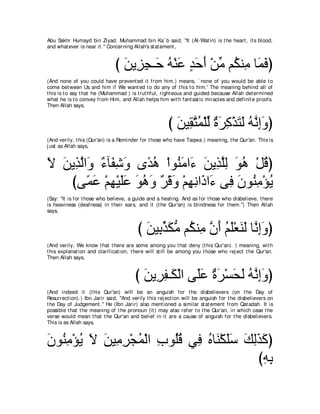 Abu Sakhr Humayd bin Ziyad. Muhammad bin Ka`b said, "It (Al-Watin) is the heart, its blood, and whatever is near it." Concerning Allah's statement,
﴿فَمَا مِنكُم مِّنْ أَحَدٍ عَنْهُ حَـجِزِينَ ﴾
(And none of you could have prevented it from him.) means, `none of you would be able to come between Us and him if We wanted to do any of this to him.' The meaning behind all of this is to say that he (Muhammad ) is truthful, righteous and guided because Allah determined what he is to convey from Him, and Allah helps him with fantastic miracles and definite proofs. Then Allah says,
﴿وَإِنَّهُ لَتَذْكِرَةٌ لِّلْمُتَّقِينَ ﴾
(And verily, this (Qur'an) is a Reminder for those who have Taqwa.) meaning, the Qur'an. This is just as Allah says,
﴿قُلْ هُوَ لِلَّذِينَ ءَامَنُواْ هُدًى وَشِفَآءٌ وَالَّذِينَ لاَ يُؤْمِنُونَ فِى ءَاذَانِهِمْ وَقْرٌ وَهُوَ عَلَيْهِمْ عَمًى﴾
(Say: "It is for those who believe, a guide and a healing. And as for those who disbelieve, there is heaviness (deafness) in their ears, and it (the Qur'an) is blindness for them.") Then Allah says,
﴿وَإِنَّا لَنَعْلَمُ أَنَّ مِنكُم مُّكَذِّبِينَ ﴾
(And verily, We know that there are some among you that deny (this Qur'an). ) meaning, with this explanation and clarification, there will still be among you those who reject the Qur'an. Then Allah says,
﴿وَإِنَّهُ لَحَسْرَةٌ عَلَى الْكَـفِرِينَ ﴾
(And indeed it (this Qur'an) will be an anguish for the disbelievers (on the Day of Resurrection).) Ibn Jarir said, "And verily this rejection will be anguish for the disbelievers on the Day of Judgement." He (Ibn Jarir) also mentioned a similar statement from Qatadah. It is possible that the meaning of the pronoun (it) may also refer to the Qur'an, in which case the verse would mean that the Qur'an and belief in it are a cause of anguish for the disbelievers. This is as Allah says,
﴿كَذَلِكَ سَلَكْنَاهُ فِي قُلُوبِ الْمُجْرِمِينَ لاَ يُؤْمِنُونَ بِهِ﴾